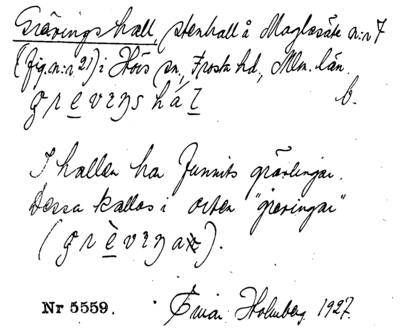 Grävingshall, stenhall å Maglasäte n:r 7
(fig. n:r 21) i Höis sn, Frosta hd, Mlm. län.
grevengshál b.
I hallen ha funnits grävlingar.
Dessa kallas i orten "grevingar"
(grèvenar).
Nr 5559. Einar Holmberg 1927.